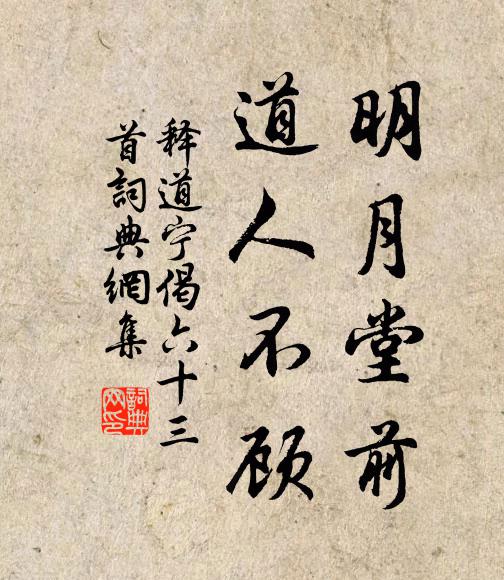 明月堂前
道人不顾
释道宁偈六十三
首詞典網集
詞典网印